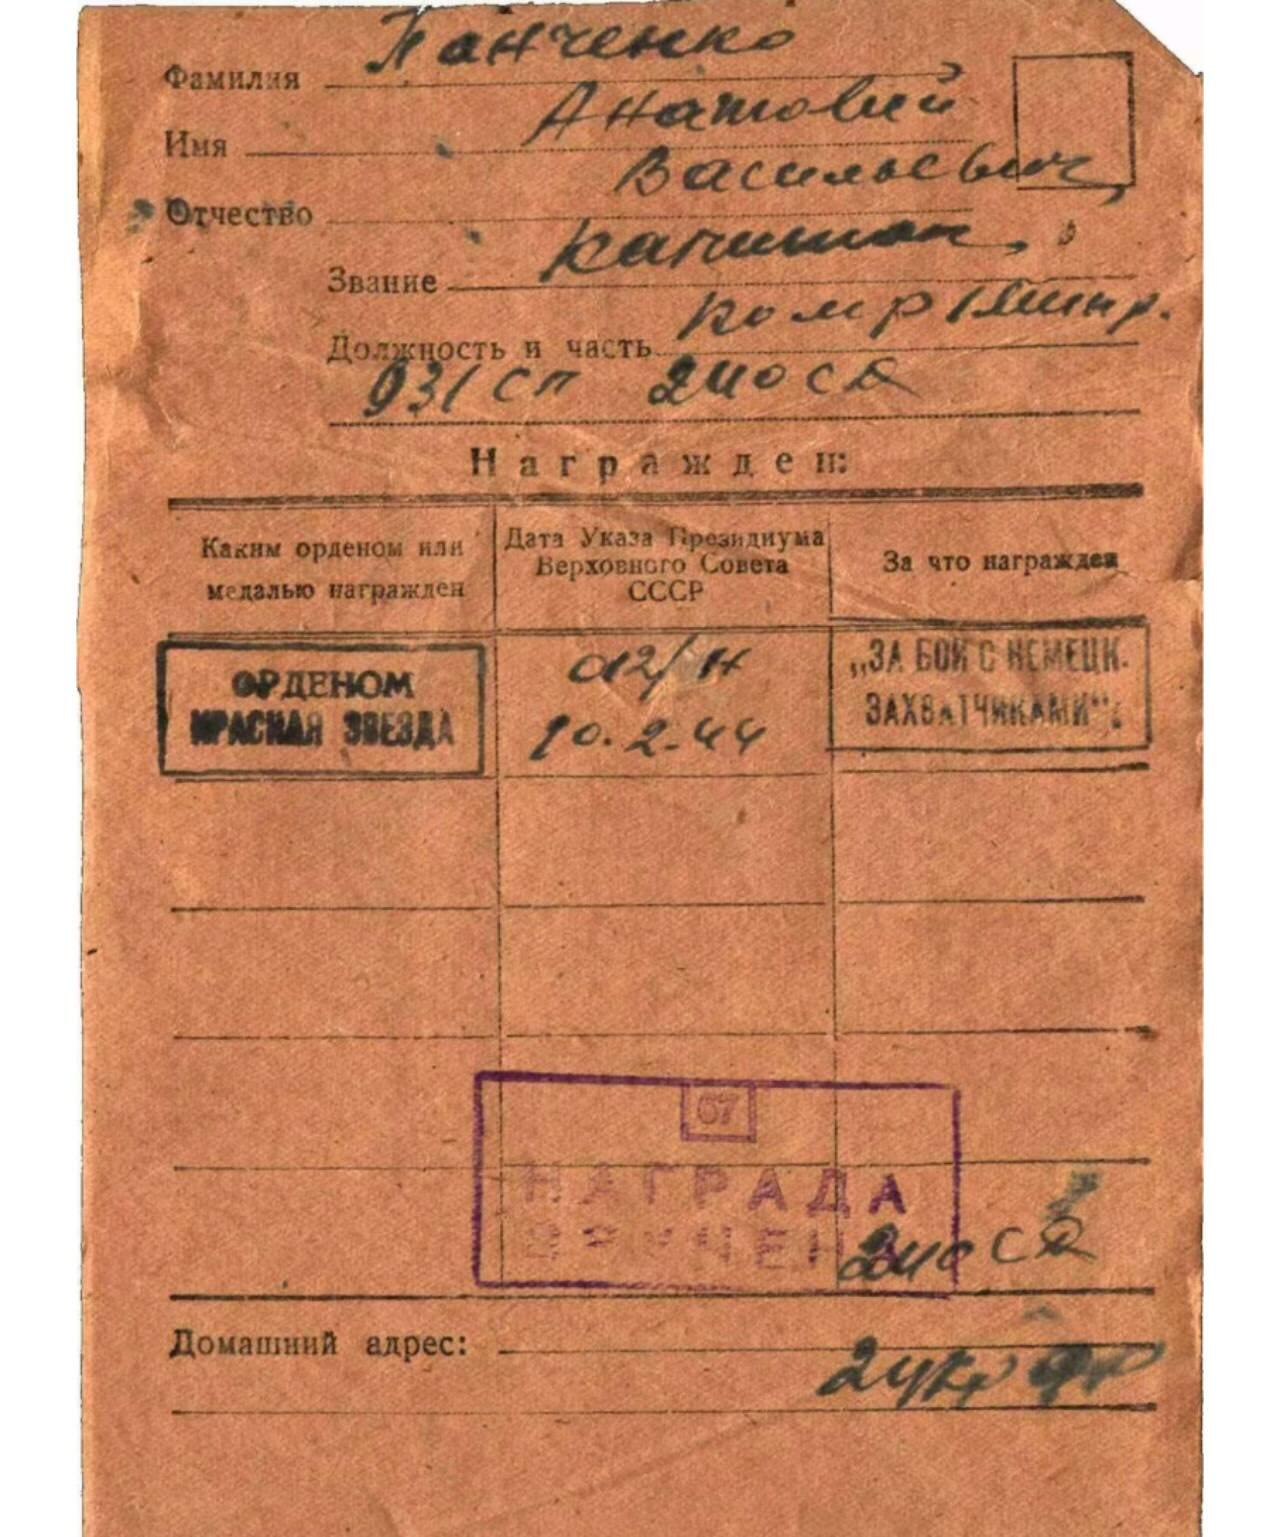 Фамилия Панченко
Имя Анатолий
Отчество Васильевич,
Звание капитан,
Должность и часть ком р
931 сп 240 сд
Награжден:
Каким орденом или медалью награжден
Дата Указа Президиума Верховного Совета СССР
За что награжден
ОРДЕНОМ
КРАСНАЯ ЗВЕЗДА
012/Н
10.2.44
„ЗА БОИ С НЕМЕЦК.
ЗАХВАТЧИКАМИ“.
67
НАГРАДА
ВРУЧЕНА
240 сд
Домашний адрес:
2 Укр фр